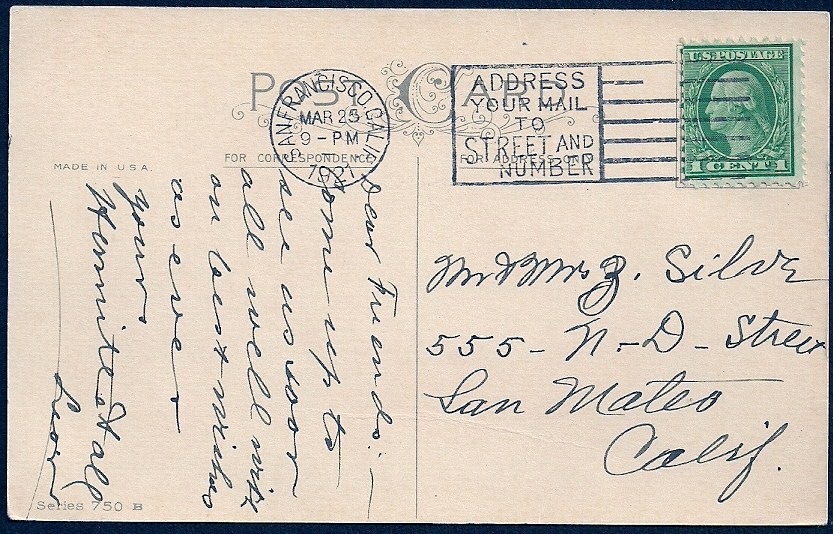 POST CARD
SAN FRANCISCO, CALIF.
MAR 25
9-PM
1921
ADDRESS
YOUR MAIL
TO
STREET AND
NUMBER
U.S. POSTAGE
1 CENT 1
FOR CORRESPONDENCE
FOR ADDRESS ONLY
MADE IN U.S.A.
Dear Friends:—
Come up to
see us soon
all well with
our best wishes
as ever
yours
Leon
Mr & Mrs J. Silva
555-N-D-Street
San Mateo
Calif.
Series 750 B